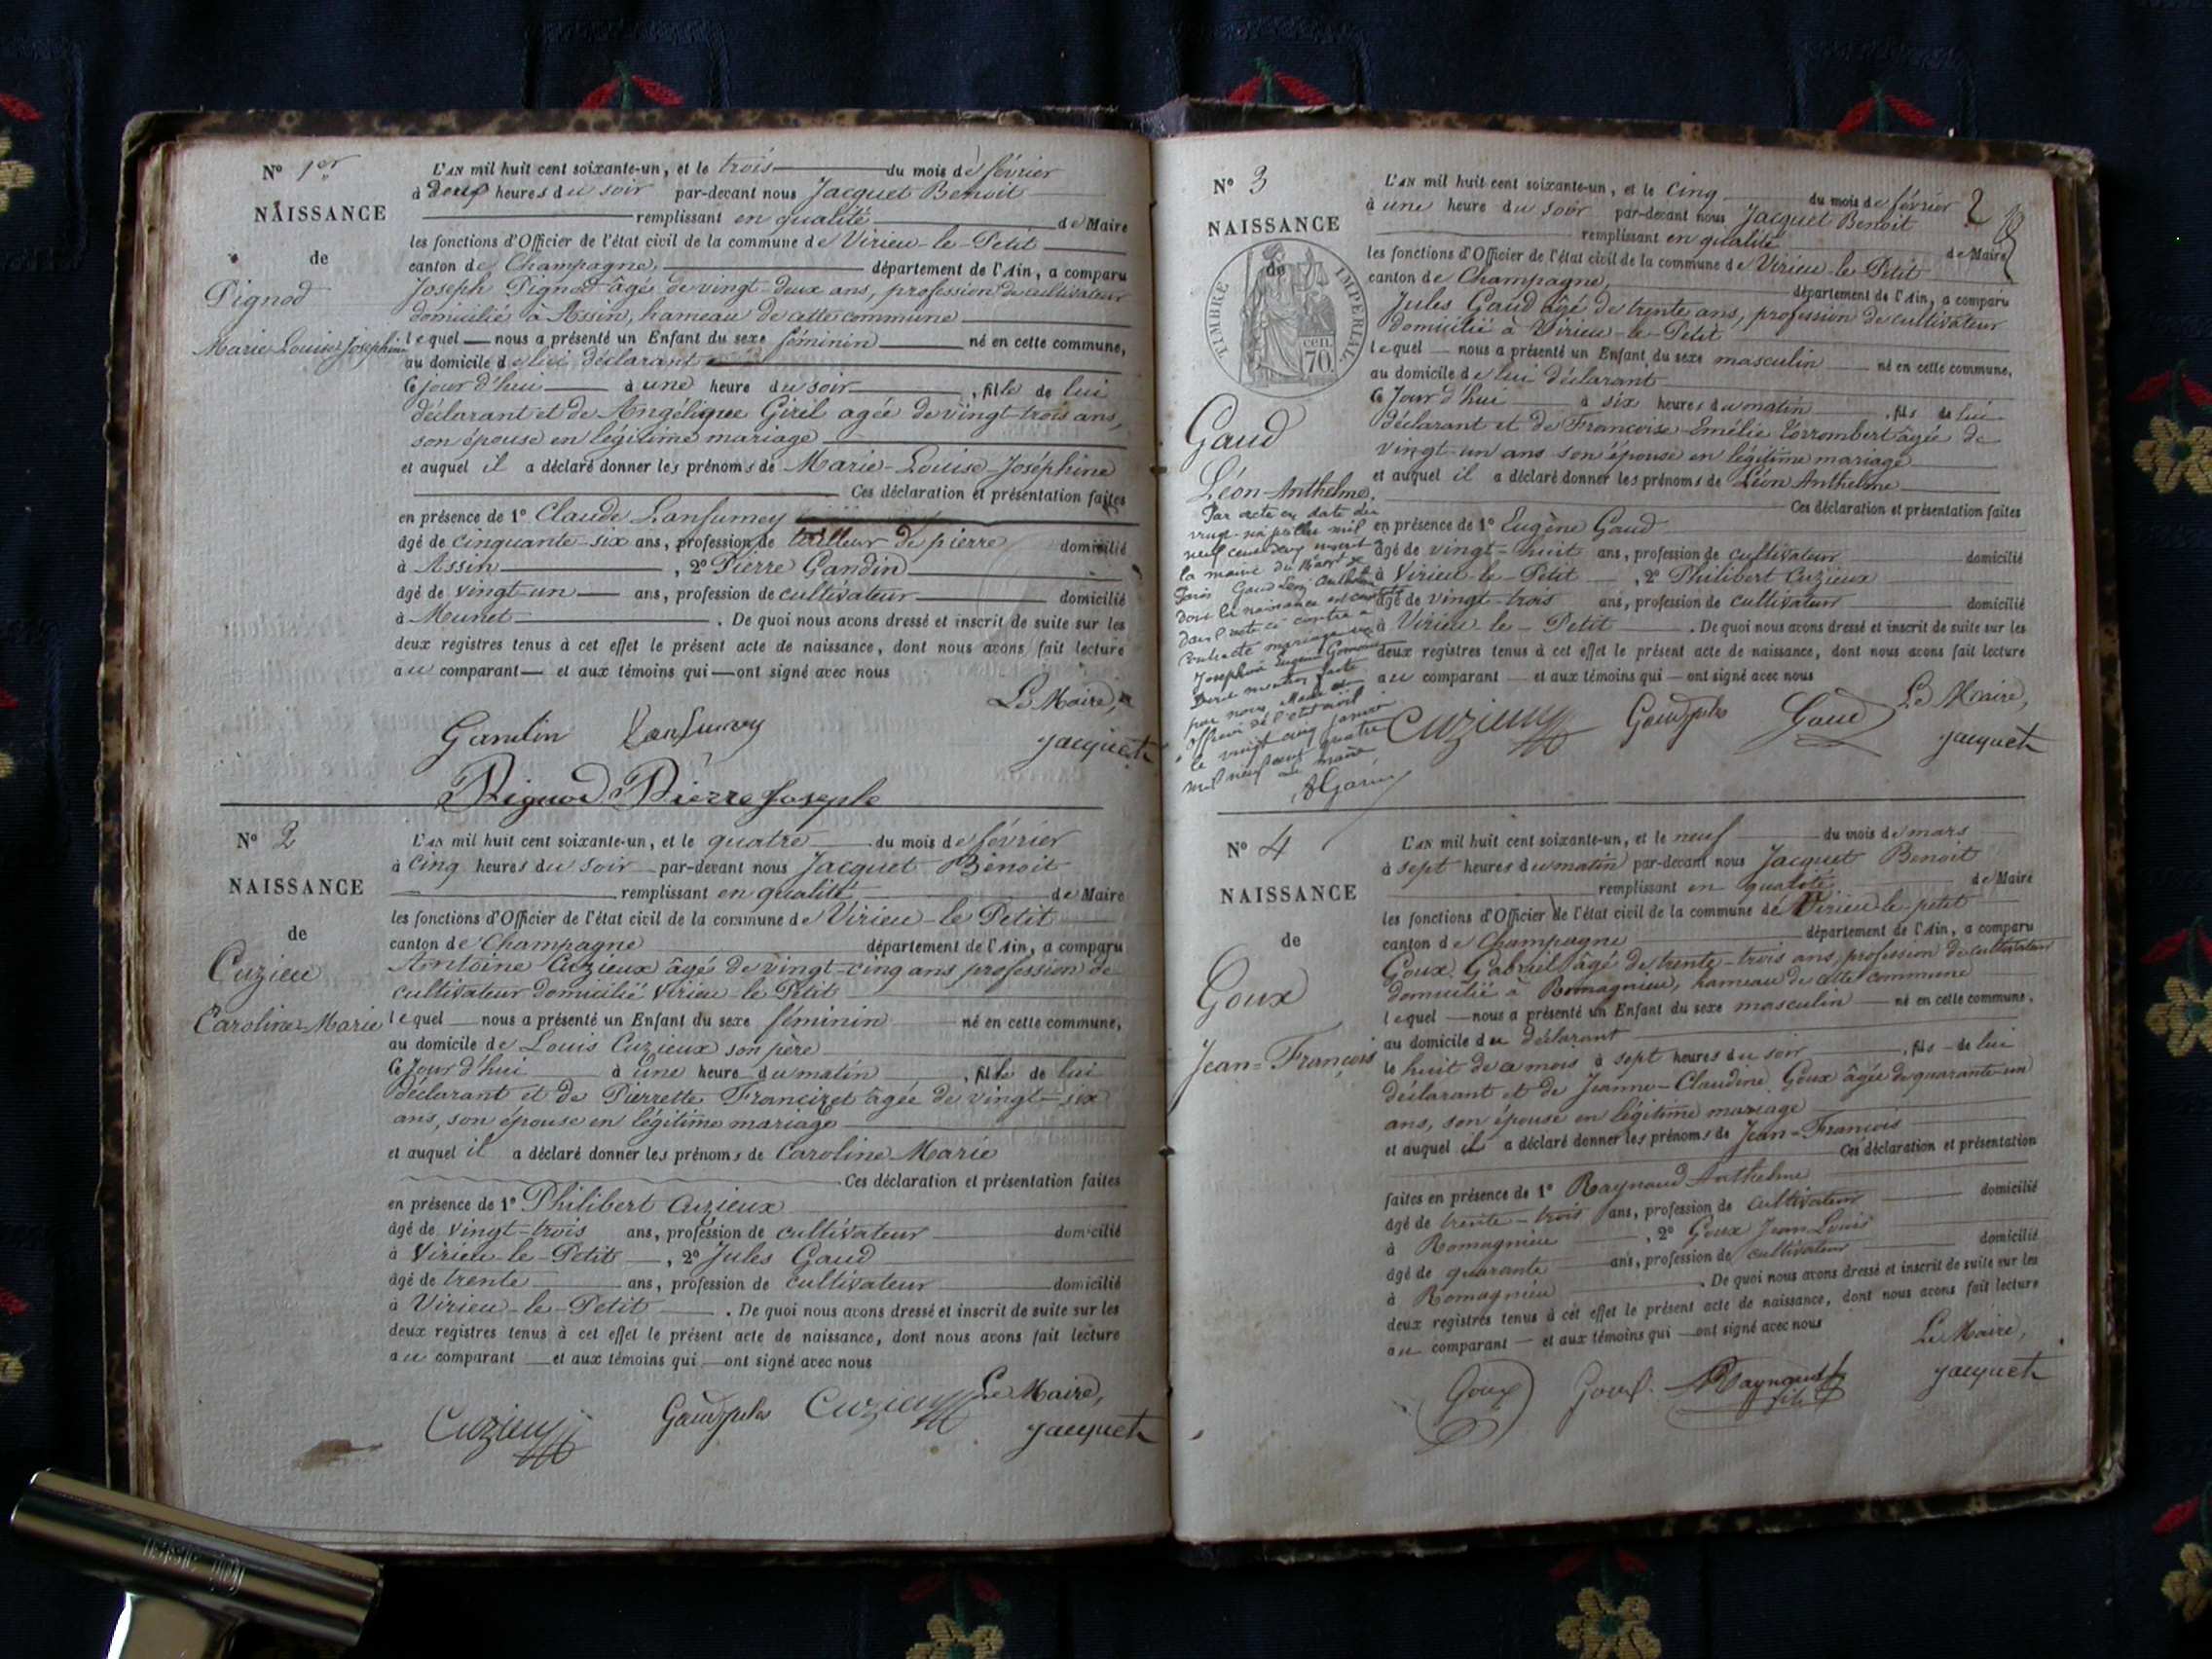 N° 1er
NAISSANCE
de
Pignod
Marie-Louise-Joséphine
L'AN mil huit cent soixante-un, et le trois du mois de février
à deux heures du soir par-devant nous Jacquet Benoit
remplissant en qualité de Maire
les fonctions d'Officier de l'état civil de la commune de Virieu-le-Petit
canton de Champagne, département de l'Ain, a comparu
Joseph Pignod âgé de vingt-deux ans, profession de cultivateur
domicilié à Assin, hameau de cette commune
lequel nous a présenté un Enfant du sexe féminin né en cette commune,
au domicile de lui déclarant
Ce jour d'hui à une heure du soir, fille de lui
déclarant et de Angélique Girel agée de vingt-trois ans,
son épouse en légitime mariage
et auquel il a déclaré donner les prénoms de Marie-Louise-Joséphine
Ces déclaration et présentation faites
en présence de 1° Claude Lanfumey
âgé de cinquante-six ans, profession de tailleur de pierre domicilié
à Assin, 2° Pierre Gandin
âgé de vingt-un ans, profession de cultivateur domicilié
à Munet. De quoi nous avons dressé et inscrit de suite sur les
deux registres tenus à cet effet le présent acte de naissance, dont nous avons fait lecture
au comparant et aux témoins qui ont signé avec nous
Le Maire,
Gandin Lanfumey Jacquet
Pignod Pierre Joseph
N° 2
NAISSANCE
de
Cuzieu
Caroline-Marie
L'AN mil huit cent soixante-un, et le quatre du mois de février
à cinq heures du soir par-devant nous Jacquet Benoit
remplissant en qualité de Maire
les fonctions d'Officier de l'état civil de la commune de Virieu-le-Petit
canton de Champagne département de l'Ain, a comparu
Antoine Cuzieux âgé de vingt-cinq ans profession de
cultivateur domicilié Virieu le Petit
lequel nous a présenté un Enfant du sexe féminin né en cette commune,
au domicile de Louis Cuzieux son père
Ce Jour d'hui à une heure du matin, fille de lui
déclarant et de Pierrette Francizet âgée de vingt-six
ans, son épouse en légitime mariage
et auquel il a déclaré donner les prénoms de Caroline-Marie
Ces déclaration et présentation faites
en présence de 1° Philibert Cuzieux
âgé de vingt-trois ans, profession de cultivateur domicilié
à Virieu-le-Petit, 2° Jules Gaud
âgé de trente ans, profession de cultivateur domicilié
à Virieu-le-Petit. De quoi nous avons dressé et inscrit de suite sur les
deux registres tenus à cet effet le présent acte de naissance, dont nous avons fait lecture
au comparant et aux témoins qui ont signé avec nous
Le Maire,
Cuzieux Gaud Jules Cuzieux Jacquet
2
N° 3
NAISSANCE
de
TIMBRE IMPERIAL
70 cen.
Gaud
Léon-Anthelme.
Par acte en date du
la mairie du
Paris Gaud Léon Anthelme
dont la naissance est constatée
dans l'acte ci contre a
contracté mariage avec
Joséphine Eugénie
par nous, Maire et
officier de l'état civil
le vingt cinq janvier
mil neuf cent quatre
Le maire
L'AN mil huit cent soixante-un, et le cinq du mois de février
à une heure du soir par-devant nous Jacquet Benoit
remplissant en qualité de Maire
les fonctions d'Officier de l'état civil de la commune de Virieu-le-Petit
canton de Champagne, département de l'Ain, a comparu
Jules Gaud âgé de trente ans, profession de cultivateur
domicilié à Virieu-le-Petit
lequel nous a présenté un Enfant du sexe masculin né en cette commune,
au domicile de lui déclarant
Ce Jour d'hui à six heures du matin, fils de lui
déclarant et de Françoise-Emélie âgée de
vingt-un ans son épouse en légitime mariage
et auquel il a déclaré donner les prénoms de Léon Anthelme
Ces déclaration et présentation faites
en présence de 1° Eugène Gaud
âgé de vingt-huit ans, profession de cultivateur domicilié
à Virieu-le-Petit, 2° Philibert Cuzieux
âgé de vingt-trois ans, profession de cultivateur domicilié
à Virieu-le-Petit. De quoi nous avons dressé et inscrit de suite sur les
deux registres tenus à cet effet le présent acte de naissance, dont nous avons fait lecture
au comparant et aux témoins qui ont signé avec nous
Le Maire,
Cuzieux Gaud Jules Gaud Jacquet
N° 4
NAISSANCE
de
Goux
Jean-François
L'AN mil huit cent soixante-un, et le neuf du mois de mars
à sept heures du matin par-devant nous Jacquet Benoit
remplissant en qualité de Maire
les fonctions d'Officier de l'état civil de la commune de Virieu-le-petit
canton de Champagne département de l'Ain, a comparu
Goux Gabriel âgé de trente-trois ans, profession de cultivateur
domicilié à Romagnieu, hameau de cette commune
lequel nous a présenté un Enfant du sexe masculin né en cette commune,
au domicile du déclarant
le huit de ce mois à sept heures du soir, fils de lui
déclarant et de Jeanne-Claudine Goux âgée de quarante-un
ans, son épouse en légitime mariage
et auquel il a déclaré donner les prénoms de Jean-François
Ces déclaration et présentation
faites en présence de 1° Raynaud Anthelme
âgé de trente-trois ans, profession de cultivateur domicilié
à Romagnieu, 2° Goux Jean Louis
âgé de quarante ans, profession de cultivateur domicilié
à Romagnieu. De quoi nous avons dressé et inscrit de suite sur les
deux registres tenus à cet effet le présent acte de naissance, dont nous avons fait lecture
au comparant et aux témoins qui ont signé avec nous
Le Maire,
Goux Goux Raynaud fils Jacquet